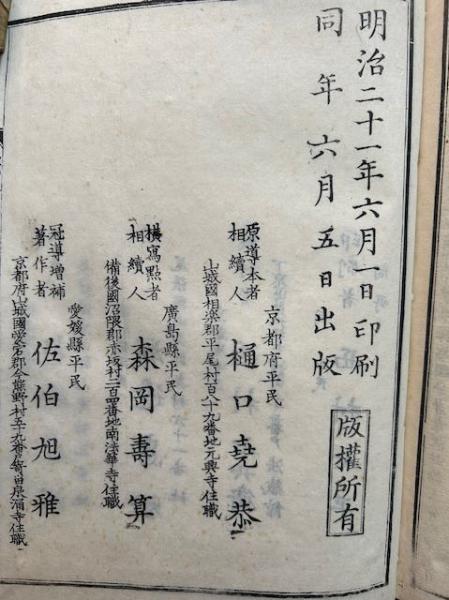 明治二十一年六月一日印刷
同年六月五日出版
版權所有
原導本者
相續人
京都府平民
樋口堯恭
山城國相楽郡平尾村百八十九番地元興寺住職
模寫點者
相續人
廣島縣平民
森岡壽算
備後國沼隈郡赤坂村二百四番地南法華寺住職
冠導增補
著作者
愛媛縣平民
佐伯旭雅
京都府山城國愛宕郡今熊野村五十九番戸寄留泉涌寺住職